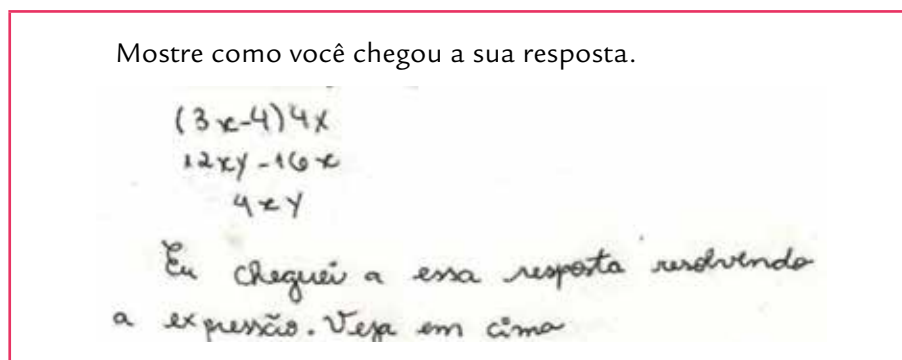 Mostre como você chegou a sua resposta.
(3x-4)4x
12xy-16x
4xy
Eu cheguei a essa resposta resolvendo
a expressão. Veja em cima